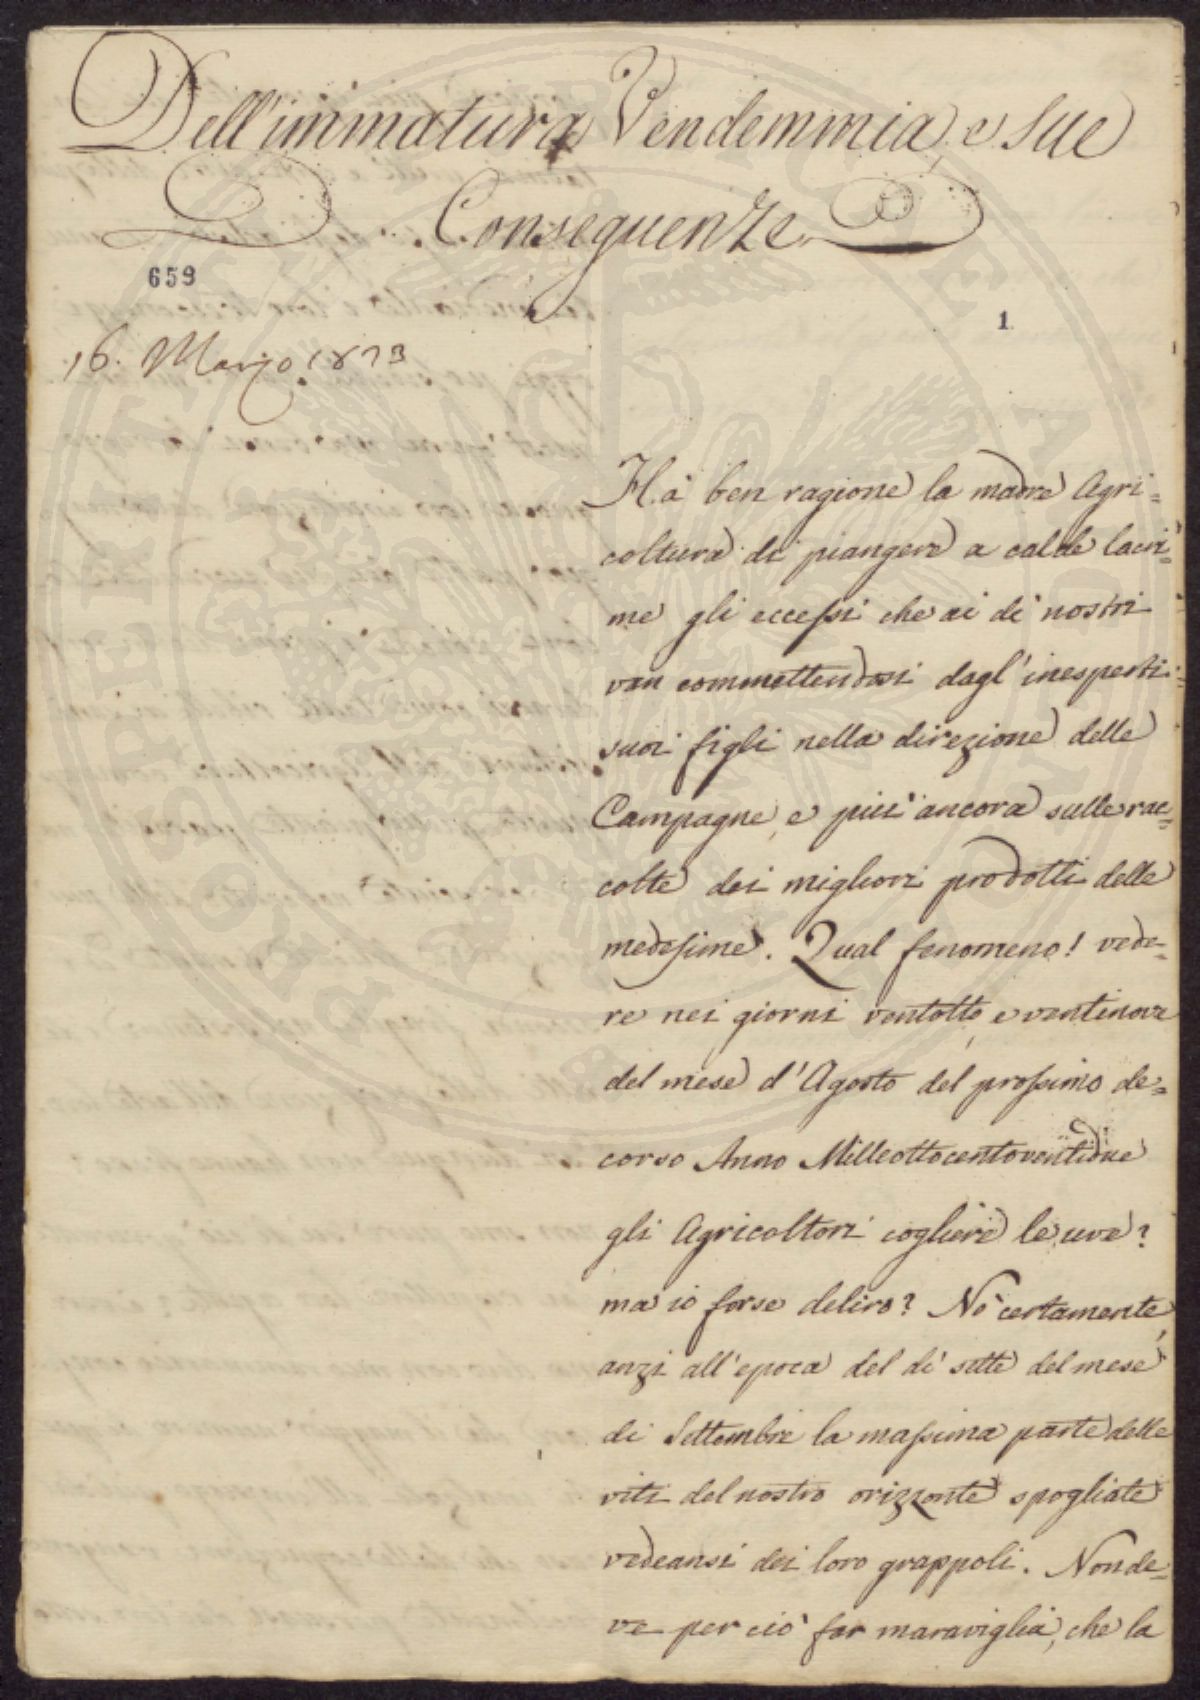 Dell'immatura Vendemmia, e sue
Conseguenze
659
1
16. Marzo 1823
Ha ben ragione la madre Agri=
coltura di piangere a calde lacri=
me gli eccessi che ai dì nostri
van commettendosi dagl'inesperti
suoi figli nella direzione delle
Campagne, e più ancora sulle rac=
colte dei migliori prodotti delle
medesime. Qual fenomeno! vede=
re nei giorni ventotto, e ventinove
del mese d'Agosto del prossimo de=
corso Anno Milleottocentoventidue
gli Agricoltori cogliere le uve?
ma io forse deliro? Nò certamente,
anzi all'epoca del dì sette del mese
di Settembre la massima parte delle
viti del nostro orizzonte spogliate
vedeansi dei loro grappoli. Non de=
ve per ciò far maraviglia, che la
PROSPERITATI PUBLICAE AUGENDAE